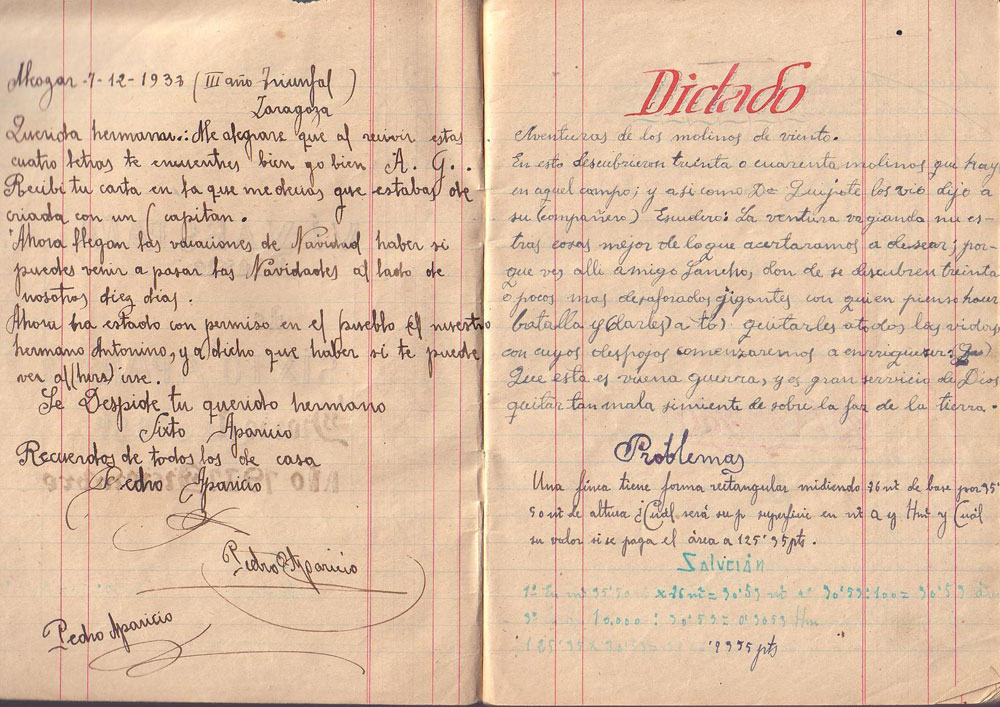 Alcozar -7-12-1933 (III año Triunfal)
Zaragoza
Querida hermana.: Me alegrare que al recivir estas
cuatro letras te encuentres bien yo bien A. G..
Recibi tu carta en la que me decias que estabas de
criada con un (capitan.
Ahora llegan las vacaciones de Navidad haber si
puedes venir a pasar las Navidades al lado de
nosotros diez dias.
Ahora ha estado con permiso en el pueblo el nuestro
hermano Antonino, y a dicho que haber si te puede
ver al (hirs) irse.
Se Despide tu querido hermano
Sixto Aparicio
Recuerdos de todos los de casa
Pedro Aparicio
Pedro Aparicio
Pedro Aparicio
Dictado
Aventuras de los molinos de viento.
En esto descubrieron treinta o cuarenta molinos que hay
en aquel campo; y asi como Dn Quijote los vio dijo a
su (compañero) Escudero: La ventura va guiando nues-
tras cosas mejor de lo que acertaramos a desear; por-
que ves alli amigo Sancho, don de se descubren treinta
o pocos mas desaforados gigantes con quien pienso hacer
batalla y (darles) a to) quitarles a todos las vidas
con cuyos despojos comenzaremos a enrriquecer:
Que esta es vuena guerra, y es gran servicio de Dios
quitar tan mala simiente de sobre la faz de la tierra.
Problemas
Una finca tiene forma rectangular midiendo de base por
50 mt de altura ¿Cuál será su p superficie en mt a y Hm y Cuál
su valor si se paga el área a 125'95 pts.
Solución
10,000 :
pts